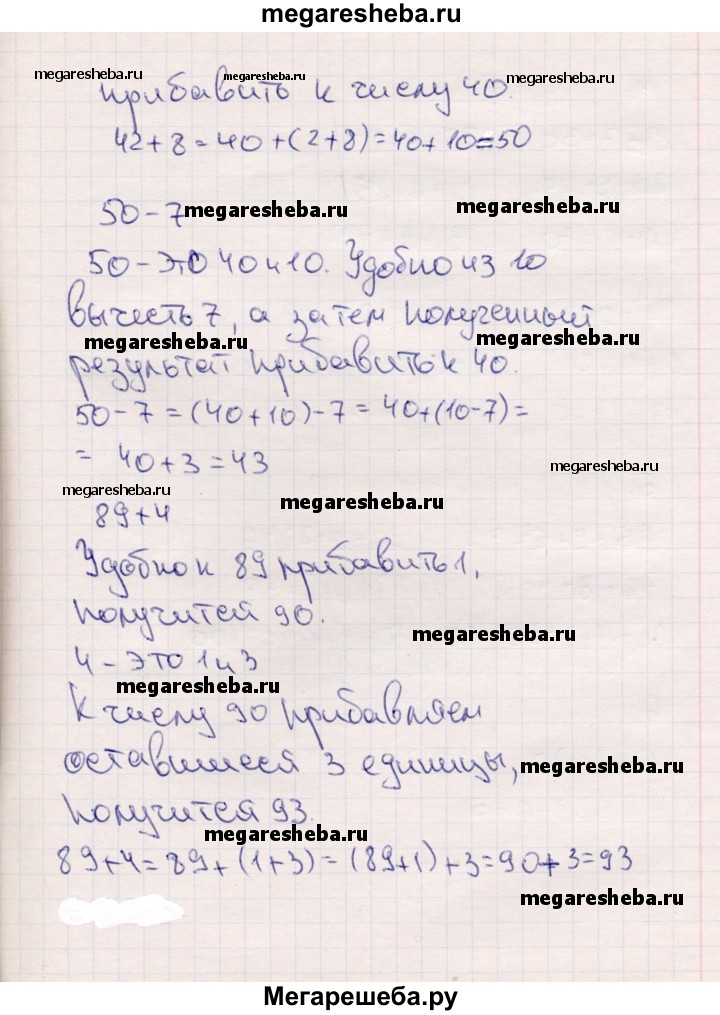 megaresheba.ru
megaresheba.ru megaresheba.ru megaresheba.ru
прибавить к числу 40.
42+8=40+(2+8)=40+10=50
50-7 megaresheba.ru megaresheba.ru
50-это 40 и 10. Удобно из 10
вычесть 7, а затем полученный
megaresheba.ru megaresheba.ru
результат прибавить к 40.
50-7=(40+10)-7=40+(10-7)=
= 40+3=43
megaresheba.ru
megaresheba.ru megaresheba.ru
89+4
Удобно к 89 прибавить 1,
получится 90.
megaresheba.ru
4-это 1 и 3
megaresheba.ru
К числу 90 прибавляем
оставшиеся 3 единицы, megaresheba.ru
получится 93.
megaresheba.ru
89+4=89+(1+3)=(89+1)+3=90+3=93
megaresheba.ru
Мегарешеба.ру